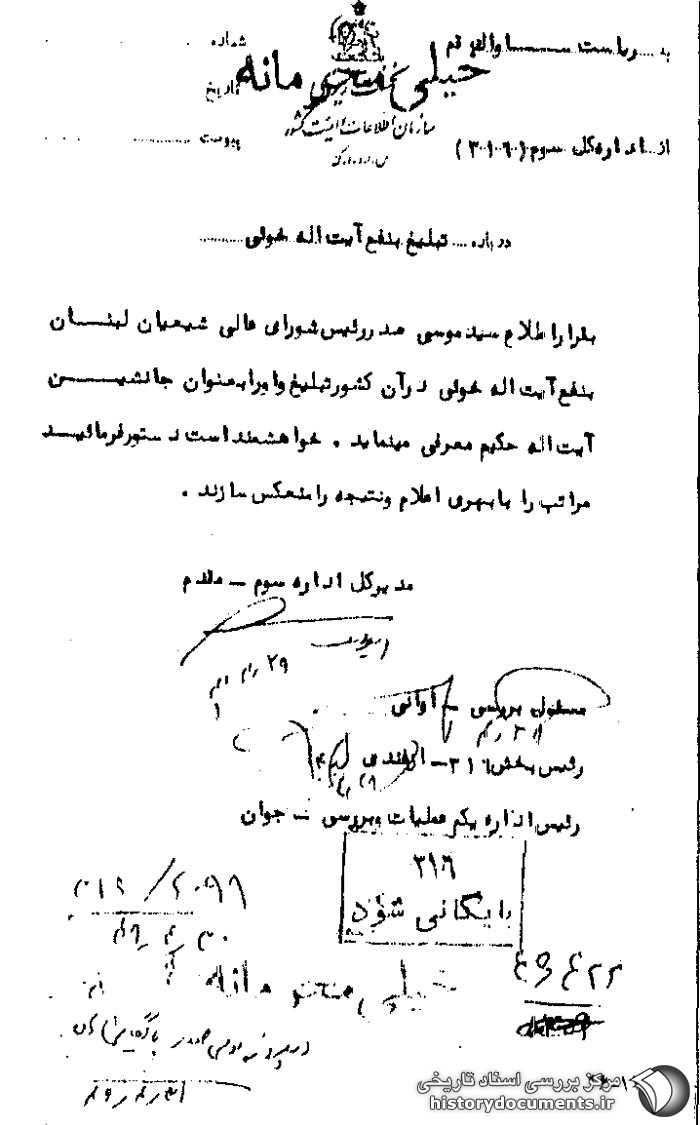 به .... ریاست ســـاواك قم
شماره
خیلی محرمانه
تاریخ
سازمان اطلاعات و امنیت کشور
س.ا.و.ا.ك
از ... اداره کل سوم (۳۰۱۶۰)
پیوست ............
درباره .... تبلیغ بنفع آیت اله خوئی ............
بقرار اطلاع سید موسی صدر رئیس شورای عالی شیعیان لبنـــان
بنفع آیت اله خوئی در آن کشور تبلیغ و او را بعنوان جانشیـــن
آیت اله حکیم معرفی مینماید . خواهشمند است دستور فرمائیــد
مراتب را با بهری اعلام ونتیجه را منعکس سازند .
مدیر کل اداره سوم ــ مقدم
مسئول بررسی ــ آوانی
رئیس بخش ۳۱۶ ــ ازغندی
رئیس اداره یکم عملیات و بررسی ــ جوان
۳۱۶
بایگانی شود
۳۱۶ / ۲۰۹۹
۴۹ ر ۴ ر ۳۰
خیلی محرمانه
۴۹۴۲۲
در پرونده موسی صدر بایگانی
۴۹ ر ۴ ر ۳۱
مرکز بررسی اسناد تاریخی
historydocuments.ir